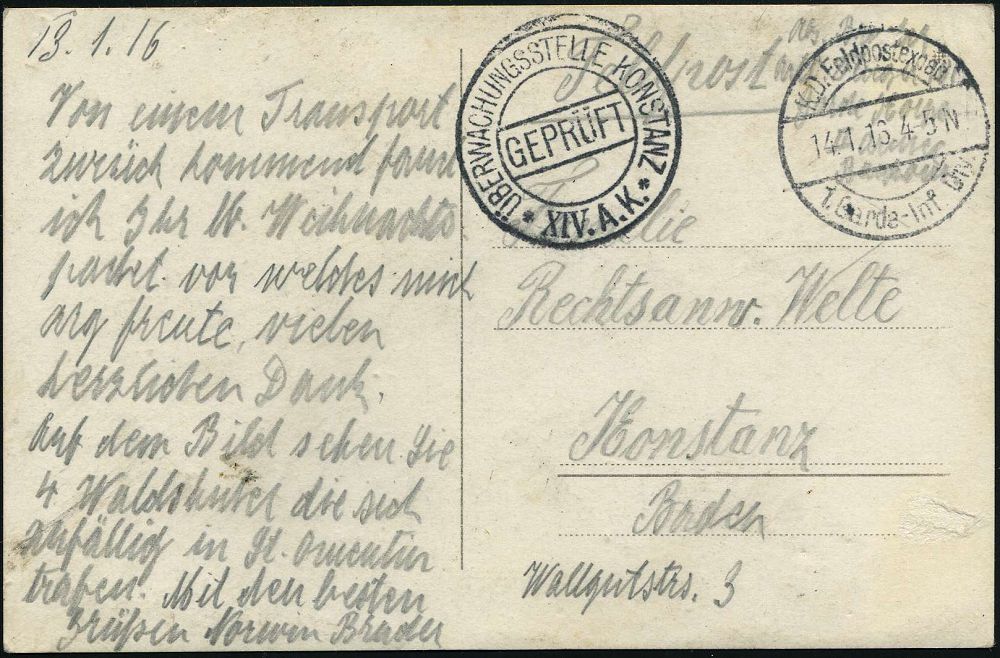 13.1.16
Von einem Transport
zurück kommend fand
ich Ihr lb. Weihnachts
packet vor welches mich
arg freute, vielen
herzlichen Dank.
Auf dem Bild sehen Sie
4 Waldshuter die sich
zufällig in St.
trafen. Mit den besten
Grüßen Norwin Brader
Feldpost
ÜBERWACHUNGSSTELLE KONSTANZ
GEPRÜFT
* XIV. A.K. *
K.D. Feldpostexped.
14.1.16 4-5 N
1. Garde-Inf. Div.
Familie
Rechtsanw. Welte
Konstanz
Baden
Wallgutstrs. 3